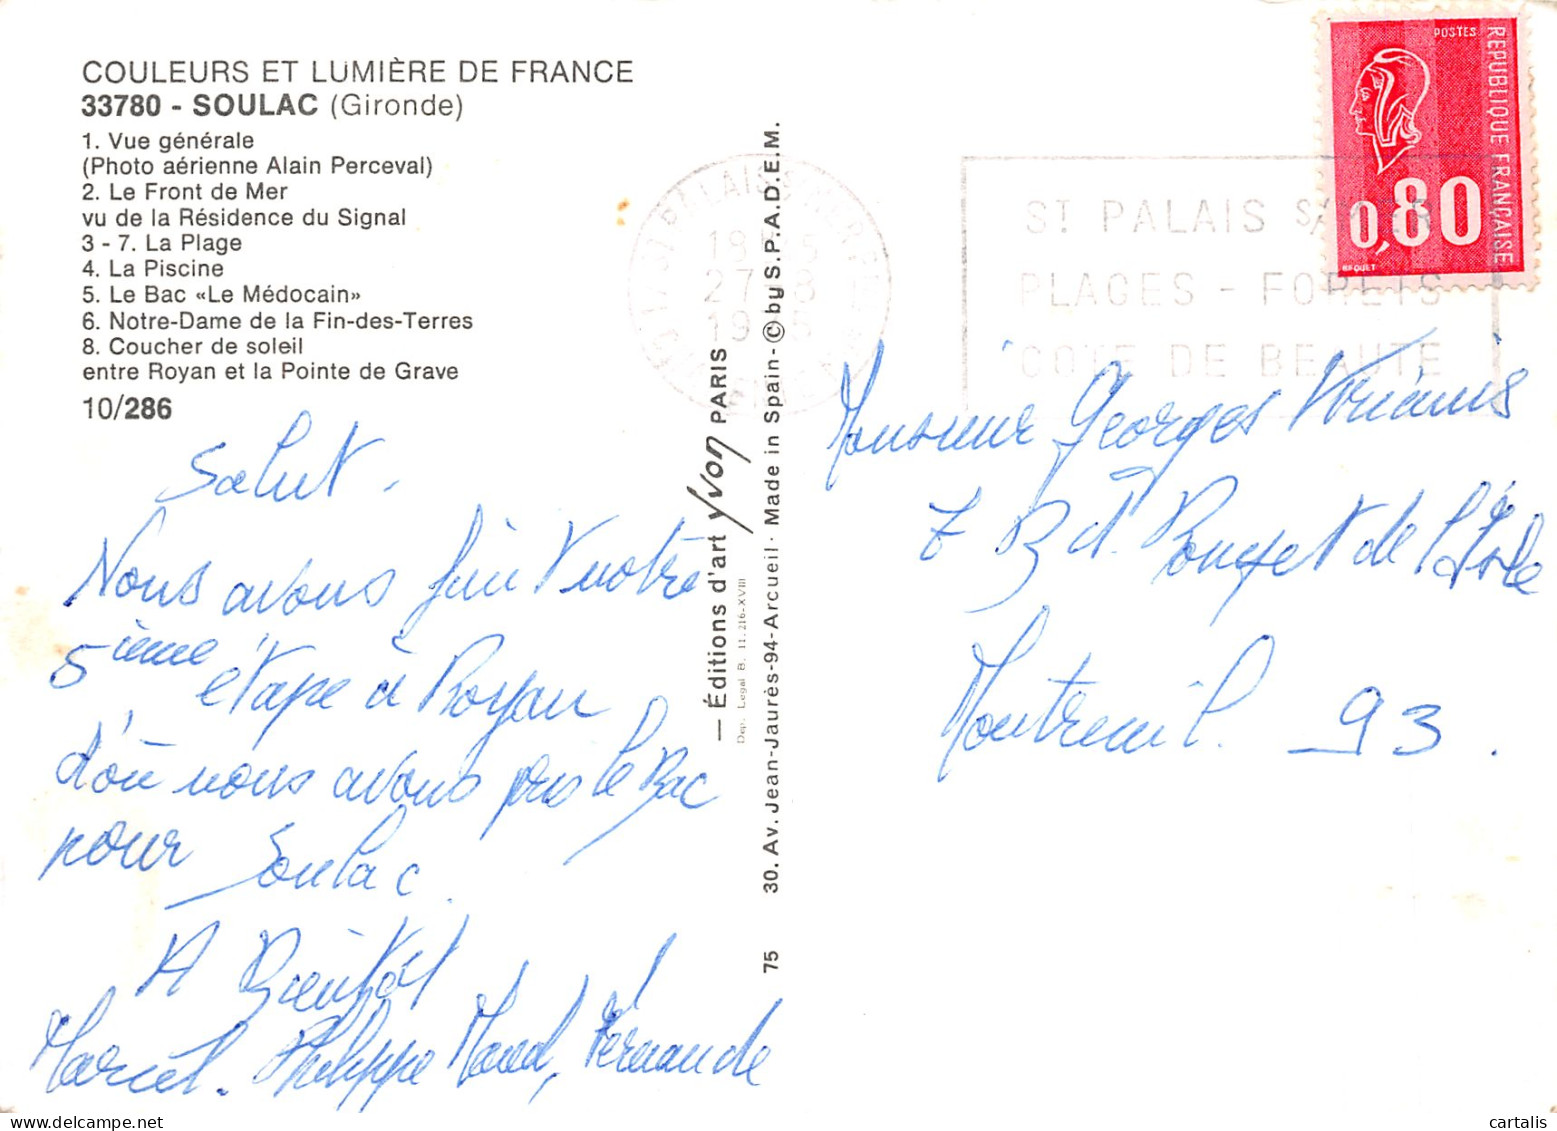 COULEURS ET LUMIÈRE DE FRANCE
33780 - SOULAC (Gironde)
1. Vue générale
(Photo aérienne Alain Perceval)
2. Le Front de Mer
vu de la Résidence du Signal
3 - 7. La Plage
4. La Piscine
5. Le Bac «Le Médocain»
6. Notre-Dame de la Fin-des-Terres
8. Coucher de soleil
entre Royan et la Pointe de Grave
10/286
Salut.
Nous avons fini notre
5ième étape à Royan
d'où nous avons pris le Bac
pour Soulac
A Bientôt
Marcel. Philippe Maud, Fernande
— Éditions d'art yvon PARIS
Dep. Legal B. 11.216-XVIII
30. Av. Jean-Jaurès-94-Arcueil · Made in Spain - © by S.P.A.D.E.M.
75
ST PALAIS S/MER
PLAGES - FORETS
COTE DE BEAUTE
POSTES
REPUBLIQUE FRANÇAISE
0,80
BEQUET
Monsieur Georges
7 Bd. de l'
Montreuil. 93.
cartalis